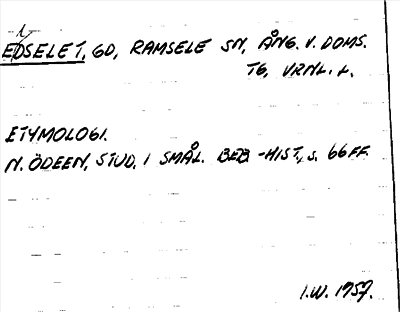 EDSELET, GD, RAMSELE SN, ÅNG. V. DOMS.
TG, VRNL. L.
ETYMOLOGI.
N. ÖDEEN, STUD. I SMÅL. BEB.-HIST., S. 66 FF.
I.W. 1957.